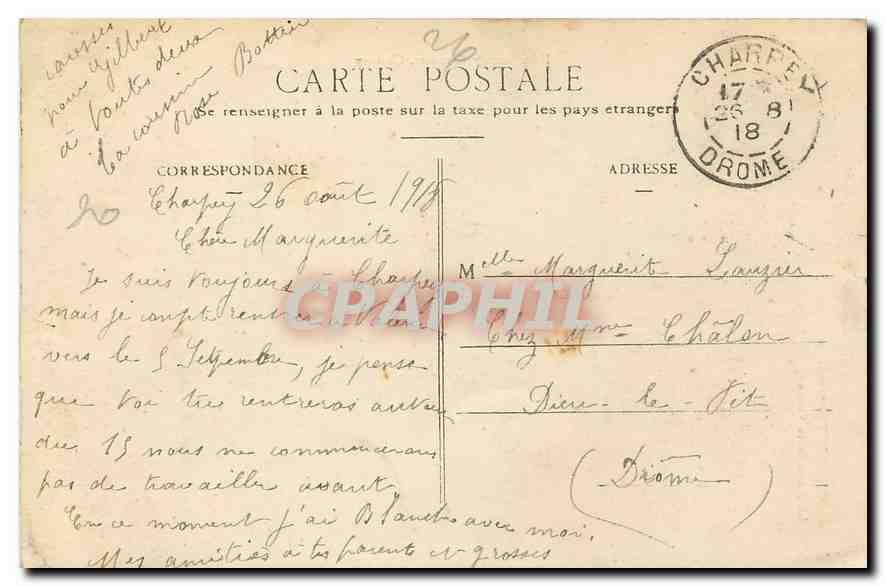 CARTE POSTALE
Se renseigner à la poste sur la taxe pour les pays étrangers
CORRESPONDANCE
ADRESSE
CHARPEY
17
26 8
18
DROME
26
20
Charpey 26 août 1918
Chère Marguerite
Je suis toujours à Charpey
mais je compte rentrer
vers le 5 Setpembre, je pense
que toi tu rentreras
du 15 nous ne commencerons
pas de travailler avant
En ce moment j'ai Blanche avec moi.
Mes amitiés à tes parents et grosses
caresses
pour Gilbert
à toutes deux
ta cousine
Rose
Melle Marguerit Lauzier
Chez Mme Châlon
Dieu-le-fit
(Drôme)
CPAPHIL